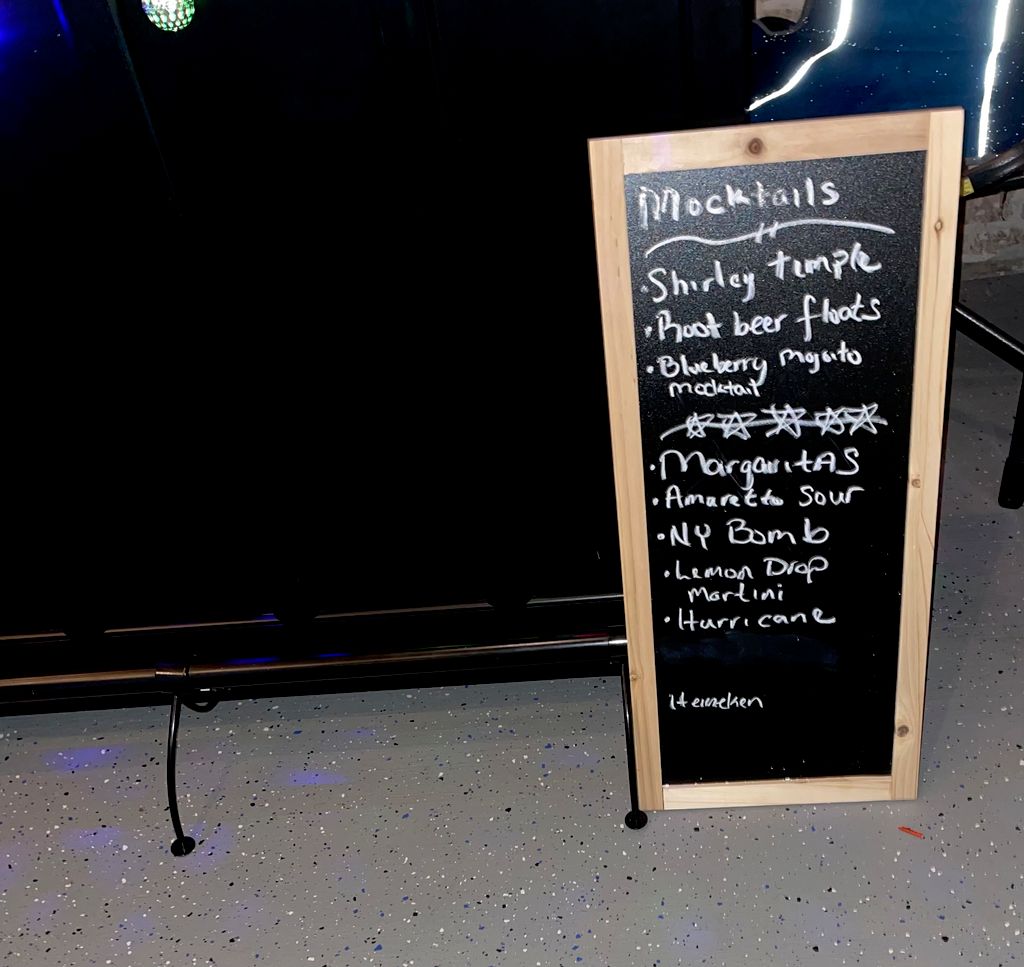 Mocktails
• Shirley temple
• Root beer floats
• Blueberry mojito
mocktail
• MargaritAS
• Amaretto Sour
• NY Bomb
• Lemon Drop
Martini
• Hurricane
Heineken